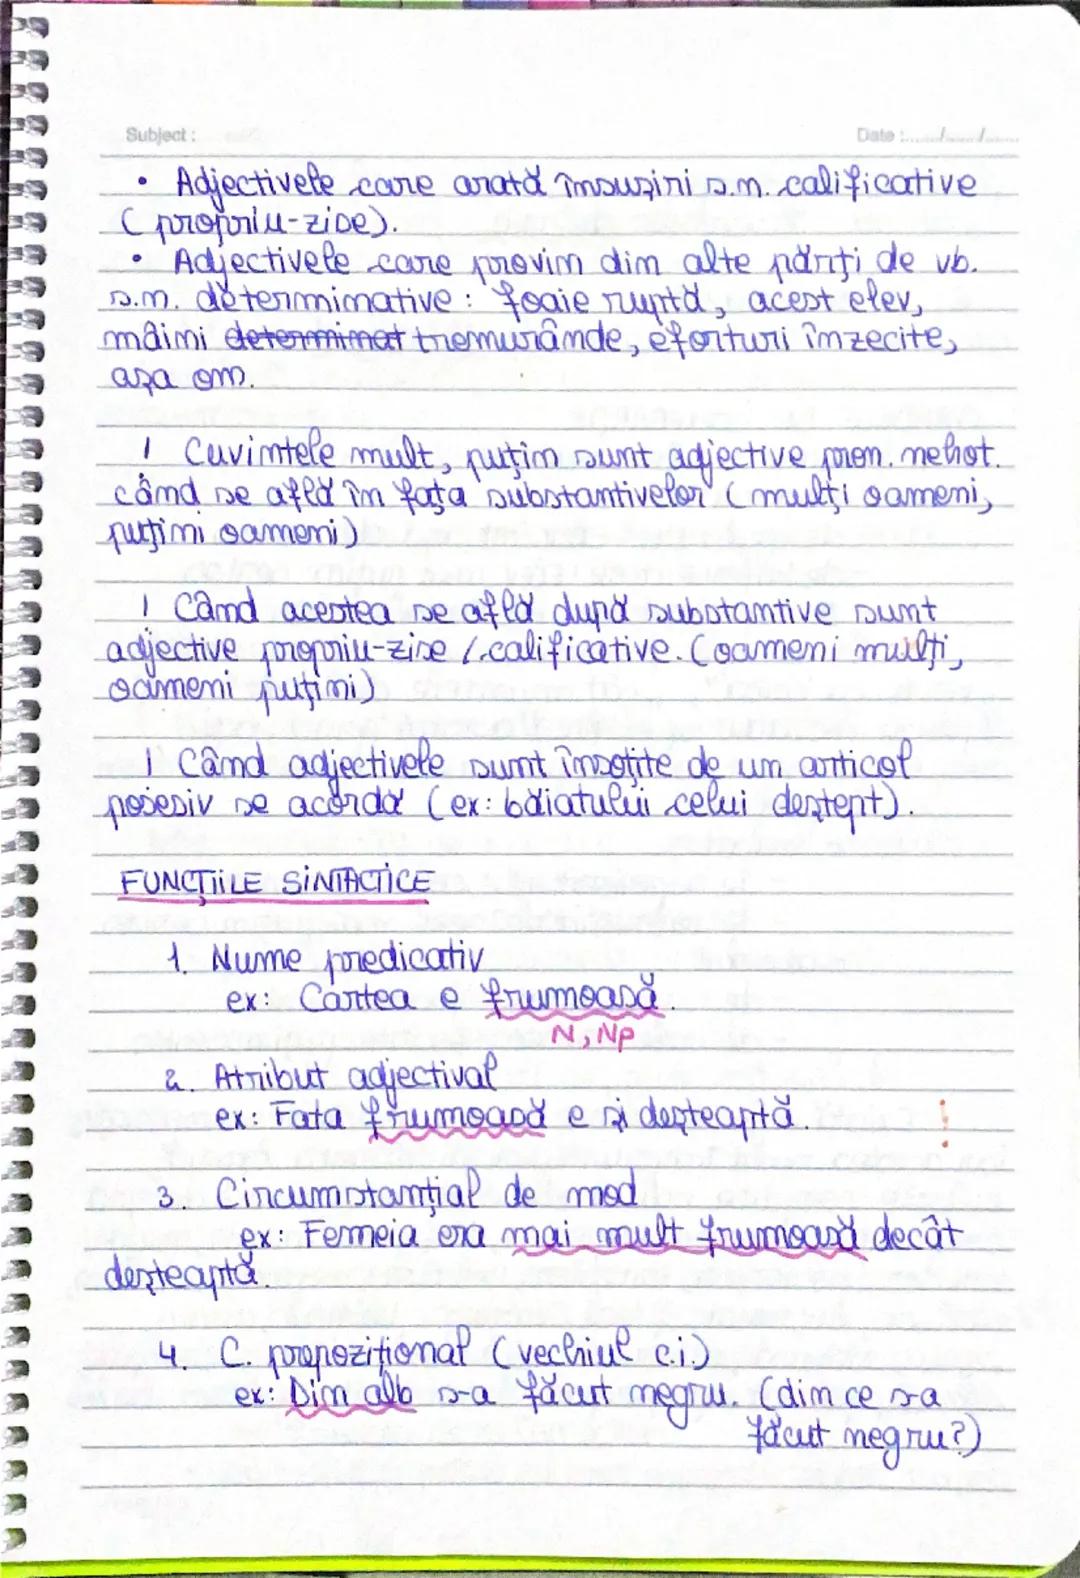 Subject :
Date :....../....../......
• Adjectivele care arată însuşiri s.m. calificative
( propriu-zise).
• Adjectivele care provin din alte părţi de vb.
s.m. determinative : foaie ruptă, acest elev,
mâini determinat tremurânde, eforturi înzecite,
aşa om.
! Cuvintele mult, puţin sunt adjective pron. nehot.
când se află în faţa substantivelor (mulţi oameni,
puţini oameni)
! Când acestea se află după substantive sunt
adjective propriu-zise /calificative. (oameni mulţi,
oameni puţini)
! Când adjectivele sunt însoţite de un articol
posesiv se acordă (ex: băiatului celui deştept).
FUNCŢIILE SINTACTICE
1. Nume predicativ
ex: Cartea e frumoasă.
N, Np
2. Atribut adjectival
ex: Fata frumoasă e şi deşteaptă. !
3. Circumstanţial de mod
ex: Femeia era mai mult frumoasă decât
deşteaptă.
4. C. prepoziţional (vechiul c.i.)
ex: Din alb s-a făcut negru. (din ce s-a
făcut negru?)